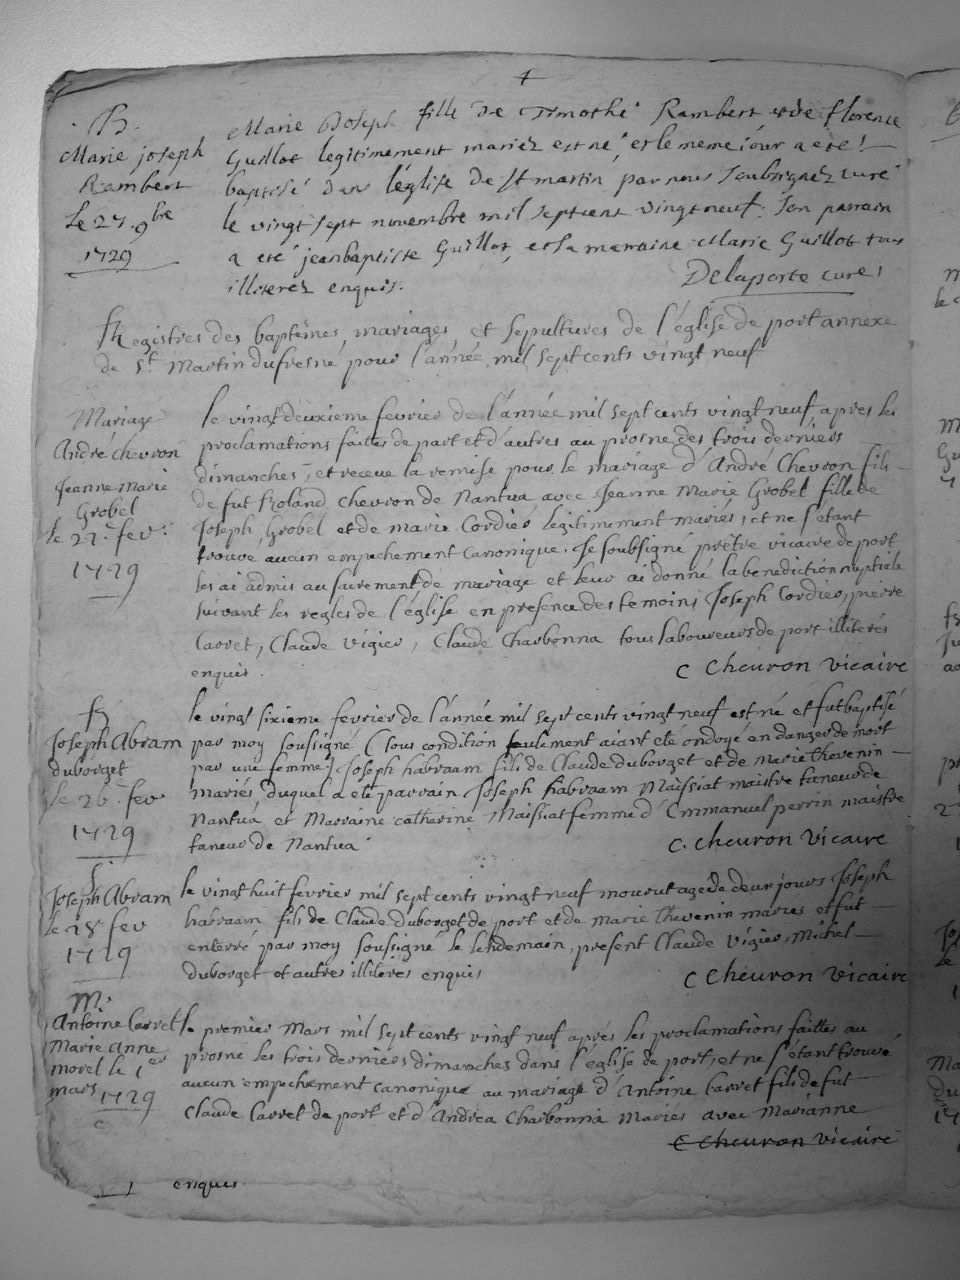 B.
Marie joseph
Rambert
le 27. 9bre
1729
Marie Joseph fille de Timothé Rambert et de florence
Guillot legitimement mariez est né, et le meme jour a eté
baptisé dans l'église de St martin par nous soubsignez curé
le vingt sept novembre mil septcent vingt neuf. Son parrain
a eté jeanbaptiste Guillot, et sa marraine Marie Guillot tous
illiterez enquis.
Delaporte curé
Registres des baptêmes, mariages, et sepultures de l'église de port annexe
de St. Martin dufresne pour l'année mil sept cents vingt neuf
Mariage
André chevron
Jeanne Marie
Grobel
le 22. fev:
1729
le vingt deuxieme fevrier de l'année mil sept cents vingt neuf, apres les
proclamations faites de part et d'autres au prosne des trois derniers
dimanches, et receue la remise pour le mariage d'André Chevron fils
de fut Roland Chevron de Nantua avec Jeanne Marie Grobel fille de
Joseph Grobel et de marie Cordier legitimement mariés, et ne s'etant
trouvé aucun empechement canonique. Je soubsigné prêtre vicaire de port
les ai admis au sacrement de mariage et leur ai donné la benediction nuptiale
suivant les regles de l'église en presence des temoins Joseph Cordier, pierre
Carret, Claude Vigier, Claude Charbonna tous laboureurs de port illiterés
enquis.
C Chevron Vicaire
B
Joseph Abram
duborget
le 26. fev
1729
le vingt sixieme fevrier de l'année mil sept cents vingt neuf est né et fut baptisé
par moy sousigné (sous condition seulement aiant eté ondoyé en danger de mort
par une femme) Joseph habraam fils de Claude duborget et de Marie Thevenin
mariés, duquel a eté parrain Joseph habraam Maissiat maistre taneur de
Nantua, et Marraine catherine Maissiat femme d'Emmanuel perrin maistre
taneur de Nantua
C. Chevron Vicaire
S
Joseph Abram
le 28 fev
1729
le vingt huit fevrier mil sept cents vingt neuf mourut agé de deux jours Joseph
habraam fils de Claude duborget de port et de Marie Thevenin mariés et fut
enterré par moy sousigné le lendemain, present Claude Vigier, Michel
duborget et autres illiterés enquis
C Chevron Vicaire
M.
Antoine Carret
Marie Anne
morel le 1er
mars 1729
le premier Mars mil sept cents vingt neuf après les proclamations faittes au
prosne les trois derniers dimanches dans l'église de port, et ne s'étant trouvé
aucun empechement canonique au mariage d'Antoine Carret fils de fut
Claude Carret de port et d'Andréa Charbonna Mariés avec Marianne
C Chevron Vicaire
enquis